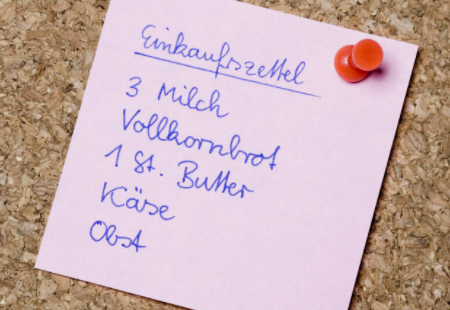 Einkaufszettel
3 Milch
Vollkornbrot
1 St. Butter
Käse
Obst